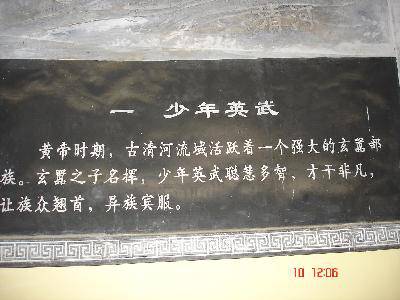 一 少年英武
黄帝时期，古清河流域活跃着一个强大的玄嚣部
族。玄嚣之子名挥，少年英武聪慧多智、才干非凡，
让族众翘首，异族宾服。
10 12:06